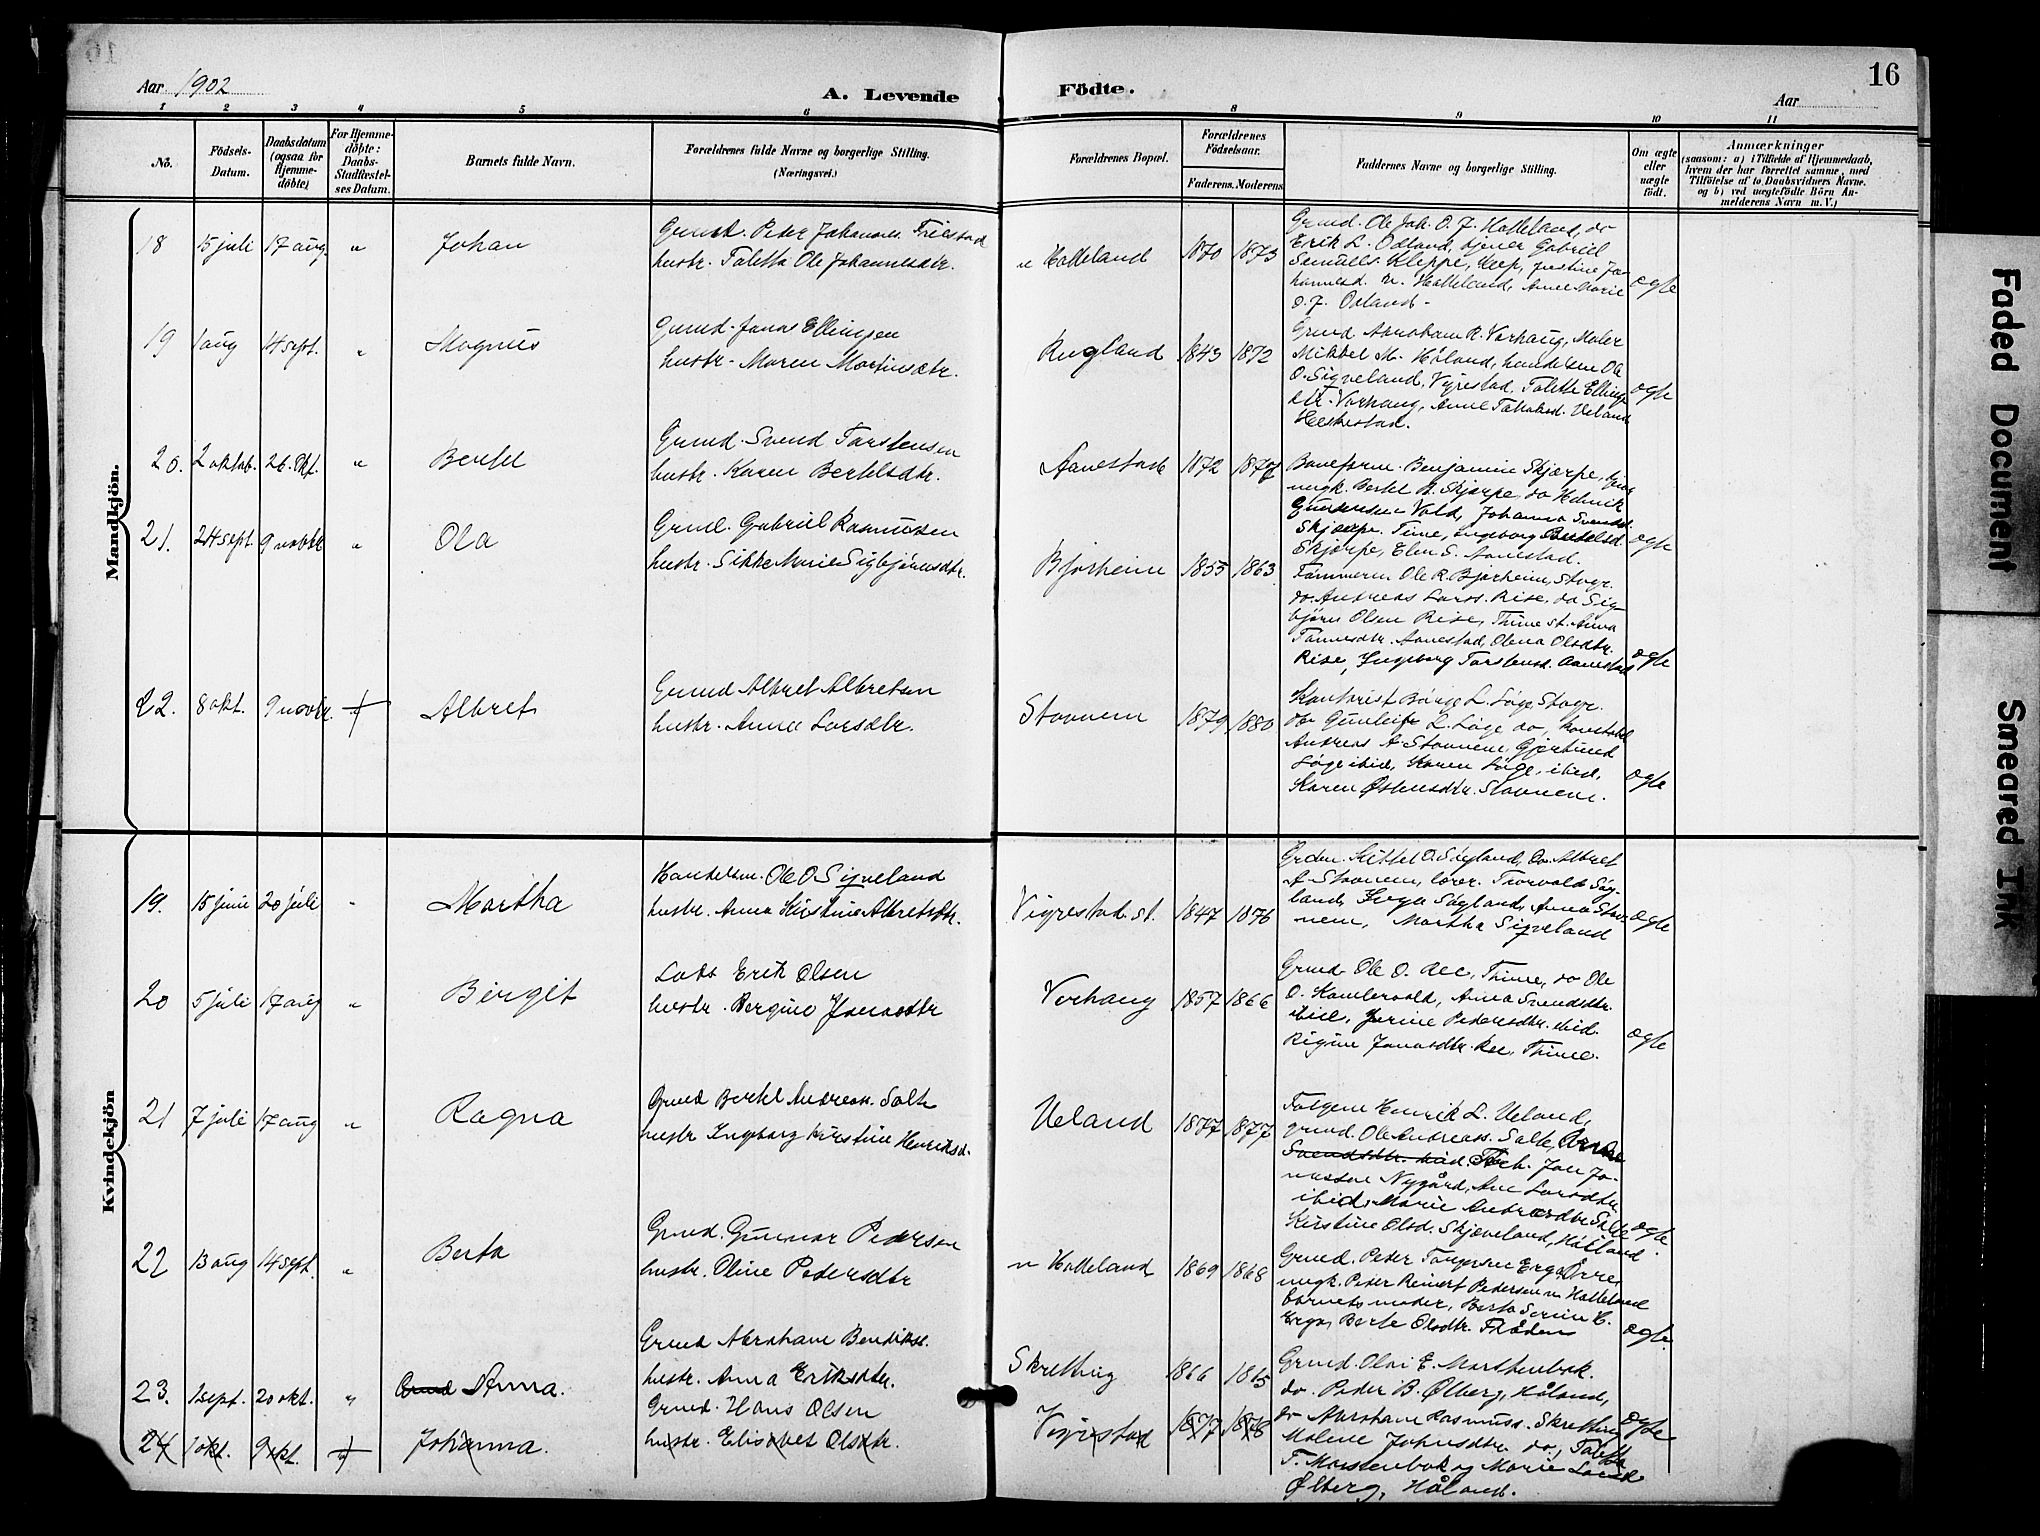 16
Aar 1902
A. Levende
Födte.
Aar
1 2 3 4 5 6 8 9 10 11
Nö.
Födsels-Datum.
Daabsdatum (ogsaa for Hjemme-döbte)
For Hjemme-döbte: Daabs-Stadfæstel-ses Datum.
Barnets fulde Navn.
Forældrenes fulde Navne og borgerlige Stilling. (Næringsvei.)
Forældrenes Bopæl.
Forældrenes Födselsaar.
Faderens. Moderens
Faddernes Navne og borgerlige Stilling.
Om ægte eller uægte födt.
Anmærkninger (saasom: a) i Tilfælde af Hjemmedaab, hvem der har forrettet samme, med Tilföielse af to Daabsvidners Navne. og b) ved uægtefödte Börn An-melderens Navn m. V.)
Mandkjön.
18 15 juli 17 aug. " Johan
Grmd. Peder Johannes. Friestad
hustr. Taletta Ole Johannesdtr.
n Hatteland 1870 1873
Grmd. Ole Joh. O. J. Hatteland, do
Erik L. Odland, tjener Gabriel
Samuels. Kleppe, Klep,
n. Hatteland, Anne Marie
O. J. Odland -
ægte
19 1 aug 14 sept. " Magnus
Grmd. Jonas Ellingsen
hustr. Maren Martinsdtr.
Rugland 1843 1872
Grmd Abraham R. Varhaug, Maler
Mikkel M. Håland, handelsm Ole
O. Sigveland, Vigrestad, Talette Ellings
dtr. Varhaug, Anne Ueland
Heskestad.
ægte
20. 2 oktob. 26. Okt. " Bertel
Grmd. Svend Tarstensen
hustr. Karen Bertelsdtr.
Aanestad 1872
Baneform. Benjamin Skjærpe,
ungk. Bertel B. Skjærpe, do Henrik
Vold, Johanna Svends
Skjærpe. Time, Ingeborg Bertelsd
Skjærpe, Elen S. Aanestad.
ægte
21. 24 sept. 9 novbr " Ola
Grmd. Gabriel Rasmusen
hustr. Sikke Marie Sigbjörnsdtr.
Bjorheim 1855 1863
Tömmerm Ole R. Bjorheim, Stvgr.
do. Andreas Lars. Rise, do Sig
björn Olsen Rise, Thime st. Anna
Tönnesdtr. Aanestad, Olena Olsdtr.
Rise, Ingeborg Tarstensd. Aanestad
ægte
22. 8 okt. 9 novbr. Albret
Grmd Albret Albretsen
hustr. Anna Larsdtr.
Stavnem 1879 1880
Kontorist Börge L. Løge Stvgr.
do Gunleif L. Løge do, konstabel
Andreas A. Stavnem, Gjertrud
Løge ibid, Karen Løge, ibid,
Karen Østensdtr. Stavnem.
ægte
Kvindekjön
19. 15 juni 20 juli " Martha
Handelsm. Ole O. Sigveland
hustr. Anna Kirstine Albretsdtr.
Vigrestad st. 1847 1876
Grdm. Kittel O. Søyland, do Albret
A. Stavnem, lærer. Thorvald Søy-
land, Inga Søyland, Anna Stav-
nem, Martha Sigveland
ægte
20 5 juli 17 aug " Birgit
Lods Erik Olsen
hustr. Bergine Jonasdtr
Varhaug 1857 1866
Grmd. Ole O. Ree, Thime, do Ole
O. Anna Svendsdtr.
ibid, Jorine Pedersdtr. ibid.
Rigine Jonasdtr. Ree, Thime.
ægte
21 7 juli 17 aug " Ragna
Grmd Bertel Andreas. Salte
hustr Ingeborg Kirstine Henriksd.
Ueland 1877 1877
Folgem Henrik L. Ueland,
grmd. Ole Andreas. Salte,
Svendsdtr. ibid. Jon Jo-
nassen Nygård, Ane Larsdtr
ibid, Marie Andreasdtr Salte
Kirstine Olsd. Skjæveland, Håland
ægte
22 13 aug 14 sept. " Berta
Grmd. Gunnar Pedersen
hustr. Oline Pedersdtr
n Hatteland 1869 1868
Grmd. Peder Torgersen Erga, Orre,
ungk. Peder Reinert Pedersen n. Hatteland
barnets moder, Berta Serine H.
Erga, Berte Olsdtr.
ægte
23. 1 sept. 20 okt. " Grmd Anna.
Grmd Abraham Bendiks.
hustr. Anna Eriksdtr.
Skretting 1866 1865
Grmd. Olai E.
do. Peder B. Ølberg, Håland,
do Abraham Rasmuss. Skretting
Malene Johnsdtr do, Taletta
T. og Marie Larsd
Ølberg, Håland.
ægte
24 1 okt. 9 okt. Johanna.
Grmd. Hans Olsen
hustr. Elisabet Olsdtr.
Vigrestad 1877 1878
Faded Document
Smeared Ink